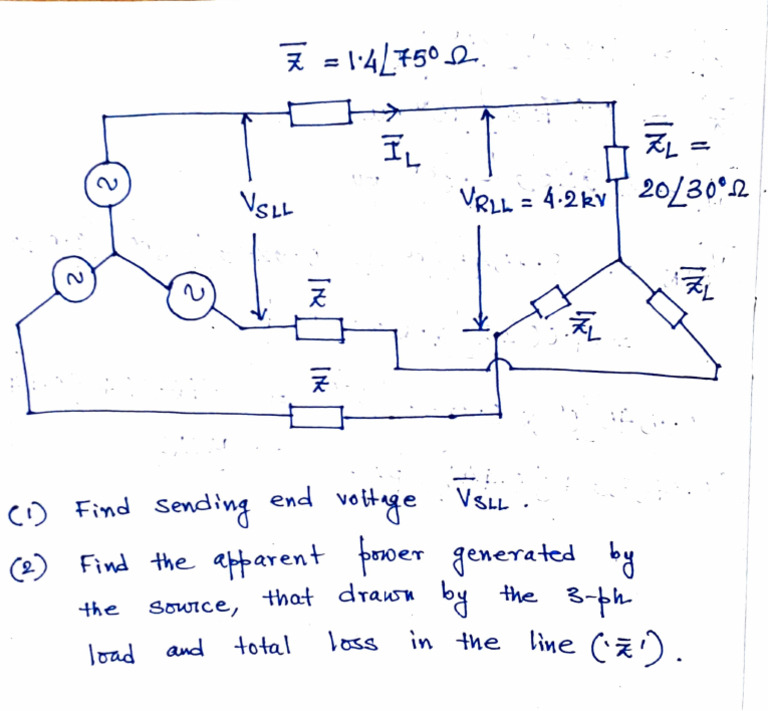 z̅ = 1.4∠75° Ω.
I̅L
Z̅L =
20∠30° Ω
VSLL
VRLL = 4.2 kV
z̅
z̅L
z̅L
z̅
(1) Find sending end voltage V̅SLL.
(2) Find the apparent power generated by
the source, that drawn by the 3-ph
load and total loss in the line ('z̅').